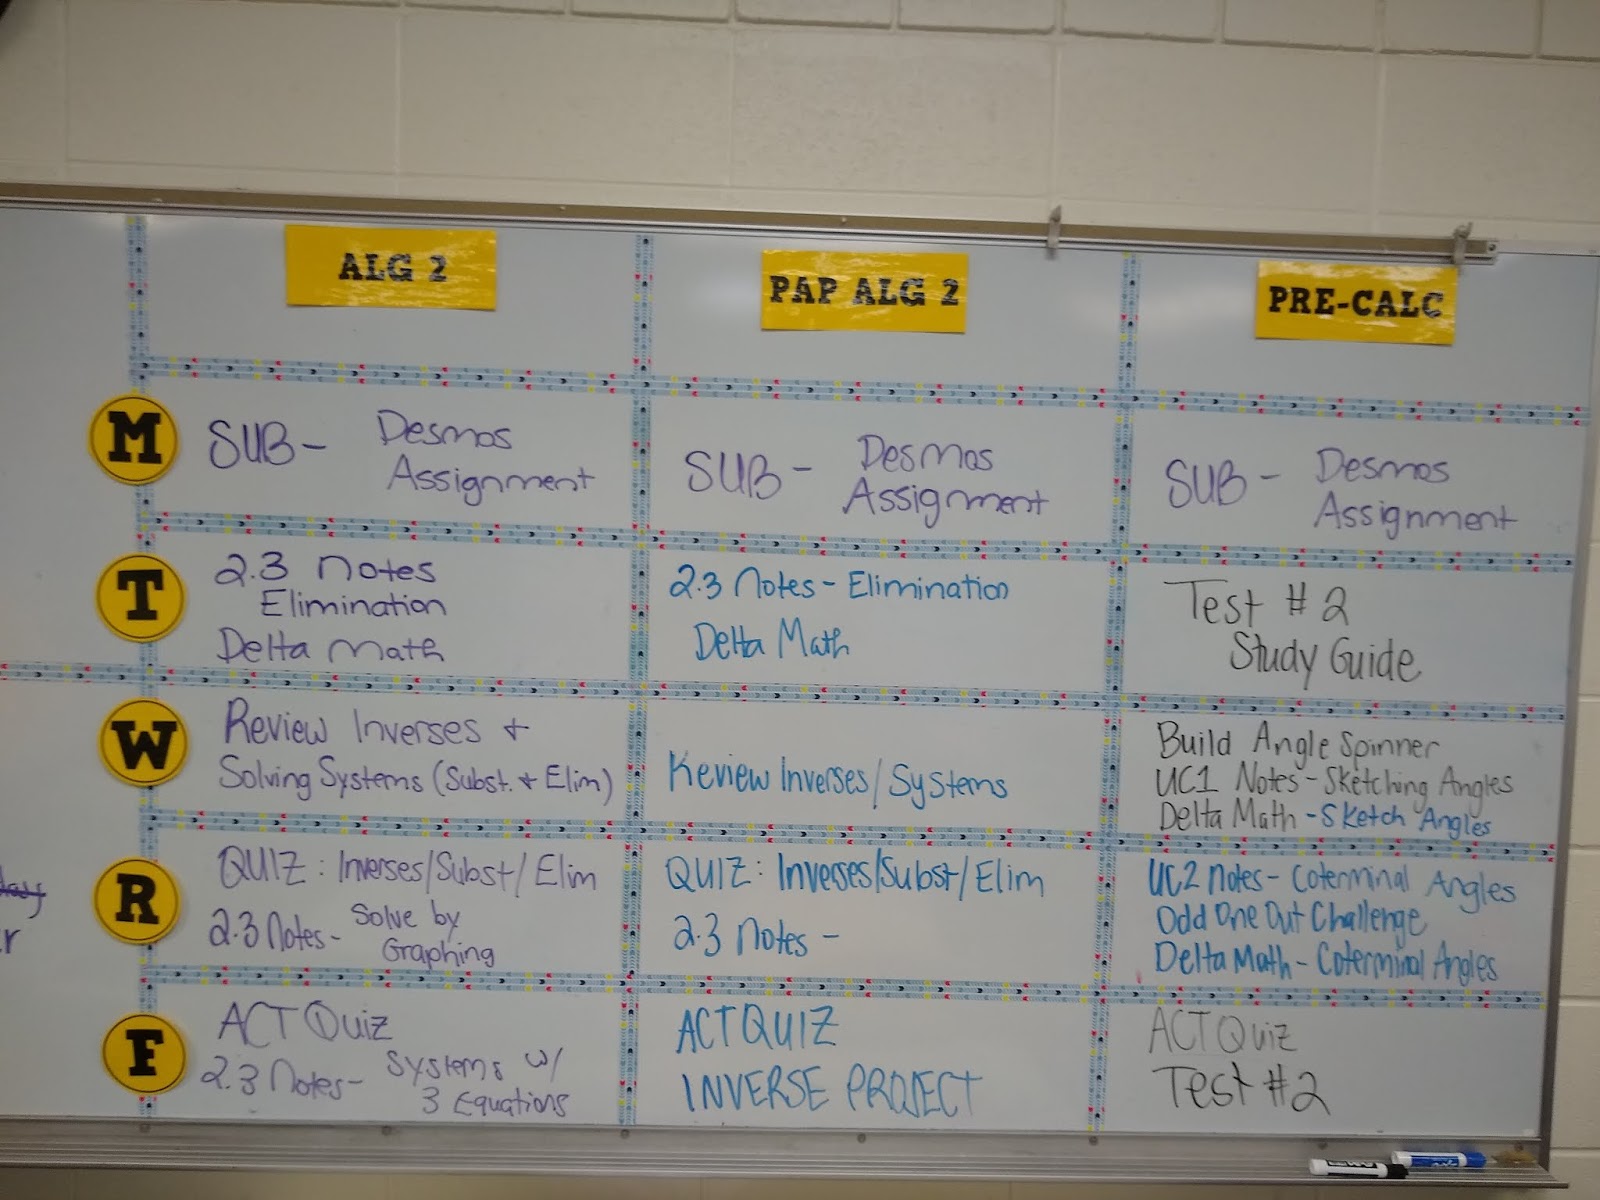 ALG 2
PAP ALG 2
PRE-CALC
M
SUB - Desmos
Assignment
SUB - Desmos
Assignment
SUB - Desmos
Assignment
T
2.3 Notes
Elimination
Delta Math
2.3 Notes - Elimination
Delta Math
Test #2
Study Guide
W
Review Inverses +
Solving Systems (Subst. + Elim)
Review Inverses/Systems
Build Angle Spinner
UC1 Notes - Sketching Angles
Delta Math - Sketch Angles
R
QUIZ: Inverses/Subst/Elim
2.3 Notes - Solve by
Graphing
QUIZ: Inverses/Subst/Elim
2.3 Notes -
UC2 Notes - Coterminal Angles
Odd One Out Challenge
Delta Math - Coterminal Angles
F
ACT Quiz
2.3 Notes - Systems w/
3 Equations
ACT QUIZ
INVERSE PROJECT
ACT Quiz
Test #2